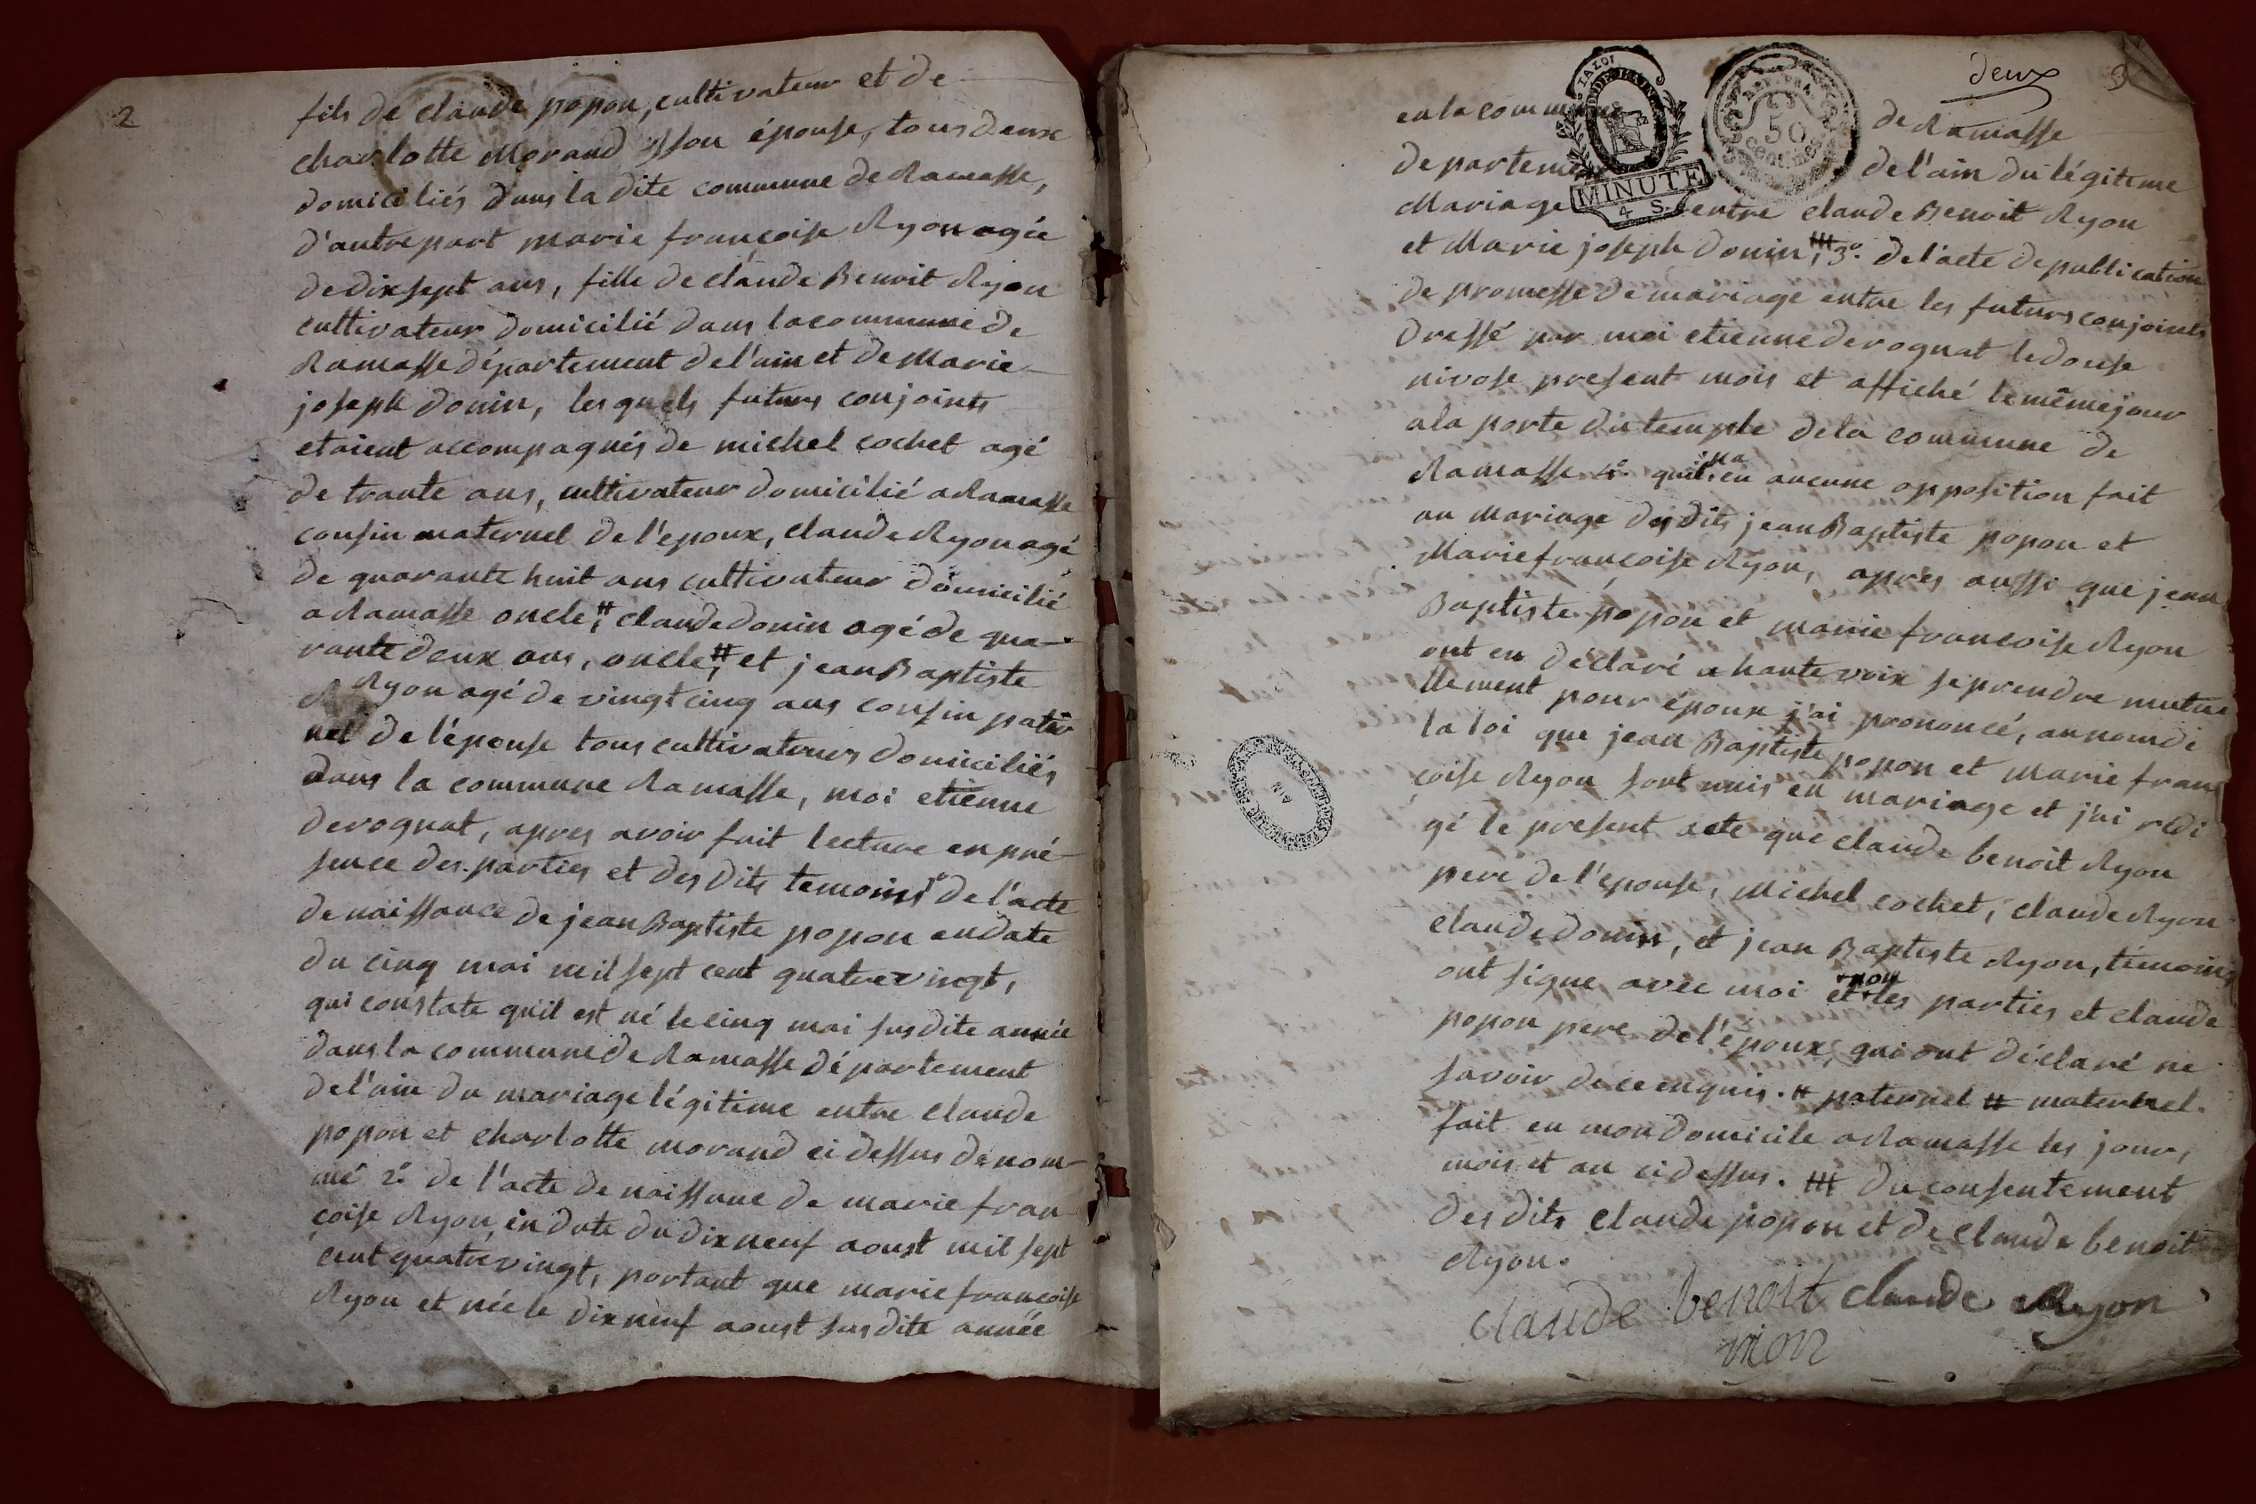 2
fils de claude popon, cultivateur et de
charlotte Morand son épouse, tous deux
domiciliés dans la dite commune de Ramasse,
d'autre part marie françoise Ryon agée
de dix sept ans, fille de claude Benoit Ryon
cultivateur domicilié dans la commune de
Ramasse département de l'ain et de Marie
joseph donin, les quels futurs conjoints
etoient accompagnés de michel cochet agé
de trante ans, cultivateur domicilié a Ramasse
cousin maternel de l'epoux, claude Ryon agé
de quarante huit ans cultivateur domicilié
a Ramasse oncle # claude donin agé de qua-
rante deux ans, oncle # et jean Baptiste
Ryon agé de vingt cinq ans cousin pater
nel de l'épouse tous cultivateurs domiciliés
dans la commune Ramasse, moi etienne
derognat, apres avoir fait lecture en pré-
sence des parties et des dits temoins 1° de l'acte
de naissance de jean Baptiste popon en date
du cinq mai mil sept cent quatre vingt,
qui constate qu'il est né le cinq mai sus dite année
dans la commune de Ramasse département
de l'ain du mariage légitime entre claude
popon et charlotte morand ci dessus denom-
mé 2° de l'acte de naissance de marie fran
çoise Ryon, en date du dix neuf aoust mil sept
cent quatre vingt, portant que marie françoise
Ryon et née le dix neuf aoust sus dite année
deux 3
en la commune de Ramasse
departement de l'ain du légitime
Mariage entre claude Benoit Ryon
MINUTE
4 S.
50
centimes
et Marie joseph donin, ## 3°. de l'acte de publication
de promesse de mariage entre les futurs conjoints
dressé par moi etienne derognat le douse
nivose present mois et affiché le même jour
a la porte du temple de la commune de
Ramasse 4° qu'il n'a eu aucune opposition fait
au mariage des dits jean Baptiste popon et
Marie françoise Ryon, apres aussi que jean
Baptiste popon et marie francoise Ryon
ont eu déclaré a haute voix se prendre mutue
llement pour époux j'ai prononcé, au nom de
la loi que jean Baptiste popon et marie fran
coise Ryon sont unis en mariage et j'ai redi
gé le present acte que claude benoit Ryon
pere de l'épouse, Michel cochet, claude Ryon
claude donin, et jean Baptiste Ryon, témoins
ont signe avec moi et non les parties et claude
popon pere de l'époux, qui ont déclaré ne
savoir de ce enquis. # paternel # maternel.
fait en mon domicile a Ramasse les jour,
mois et an ci dessus. ## du consentement
des dits claude popon et de claude benoit
Ryon.
claude benoit claude Ryon
rion